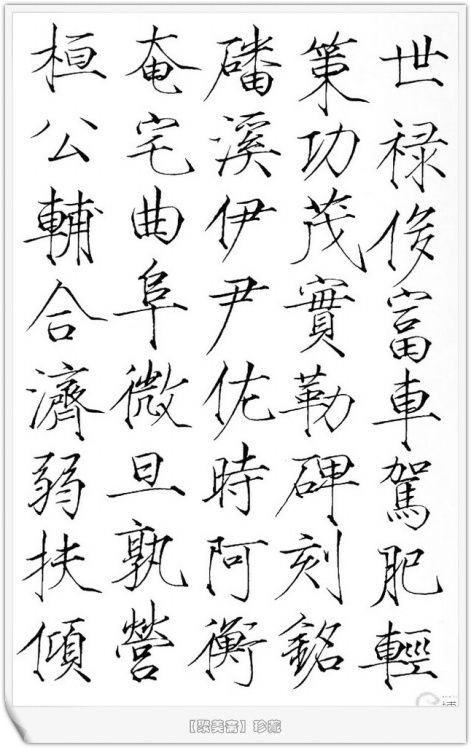 世禄侈富車駕肥輕
策功茂實勒碑刻銘
磻溪伊尹佐時阿衡
奄宅曲阜微旦孰營
桓公輔合濟弱扶傾
【聚美斋】珍藏